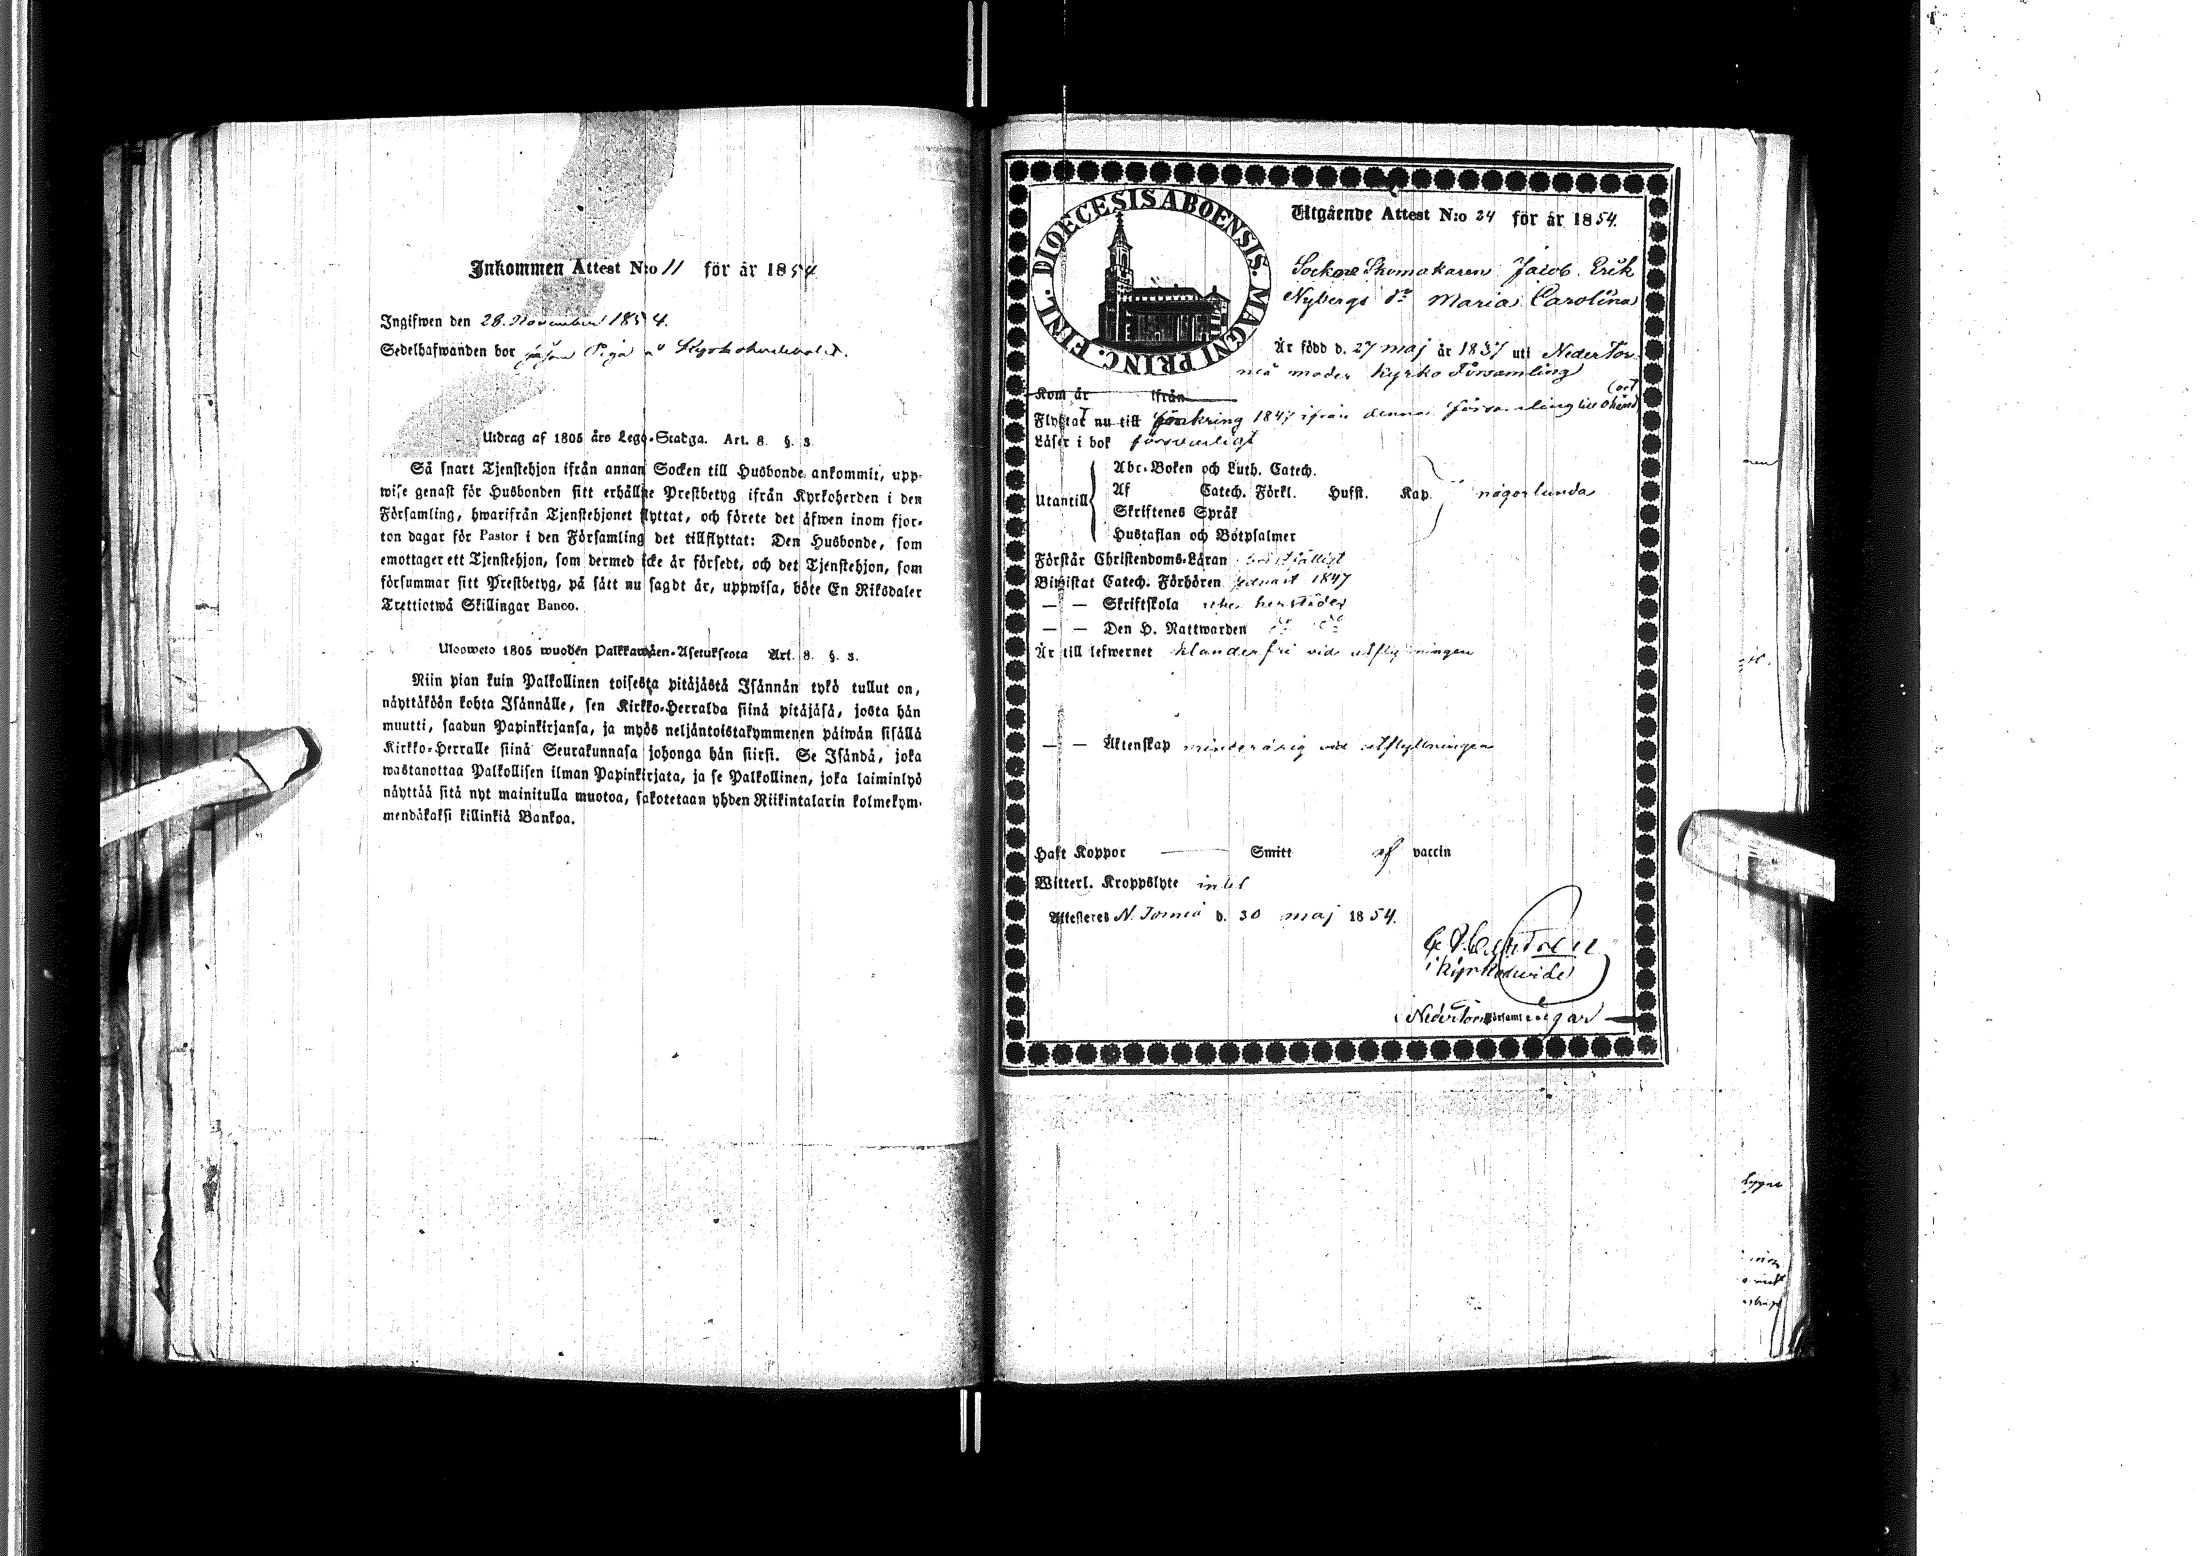 Inkommen Attest N:o 11 för år 1854
Ingifwen den 28. November 1854.
Sedelhafwanden bor såsom Piga
Utdrag af 1805 års Lego-Stadga. Art. 8. §. 3.
Så snart Tjenstehjon ifrån annan Socken till Husbonde ankommit, upp-
wise genast för Husbonden sitt erhållne Prestbetyg ifrån Kyrkoherden i den
Församling, hwarifrån Tjenstehjonet flyttat, och förete det äfwen inom fjor-
ton dagar för Pastor i den Församling det tillflyttat: Den Husbonde, som
emottager ett Tjenstehjon, som dermed icke är försedt, och det Tjenstehjon, som
försummar sitt Prestbetyg, på sätt nu sagdt är, uppwisa, böte En Riksdaler
Trettiotwå Skillingar Banco.
Ulosweto 1805 wuoden Palkkawäen-Asetuksesta Art. 8. §. 3.
Niin pian kuin Palkollinen toisesta pitäjästä Isännän tykö tullut on,
näyttäköön kohta Isännälle, sen Kirkko-Herralda siinä pitäjäsä, josta hän
muutti, saadun Papinkirjansa, ja myös neljäntoistakymmenen päiwän sisällä
Kirkko-Herralle siinä Seurakunnasa johonga hän siirsi. Se Isändä, joka
wastanottaa Palkollisen ilman Papinkirjata, ja se Palkollinen, joka laiminlyö
näyttää sitä nyt mainitulla muotoa, sakotetaan yhden Riikintalarin kolmekym-
mendäkaksi killinkiä Bankoa.
DIOECESIS ABOENSIS. MAGNI PRINC. FINL.
Utgående Attest N:o 24 för år 1854.
Sockne Skomakaren Jacob Erik
Nybergs dr Maria Carolina
Är född d. 27 maj år 1837 uti Neder Tor-
neå moder kyrko Församling
Kom år ifrån
Flyttat nu till kring 1847 ifrån denna församling till okänd (ort
Läser i bok försvarligt
Abc-Boken och Luth. Catech.
Utantill Af Catech. Förkl. Husst. Kap. någorlunda
Skriftenes Språk
Hustaflan och Botpsalmer
Förstår Christendoms-Läran enfälligt
Biwistat Catech. Förhören sednast 1847
— — Skriftskola
— — Den H. Nattwarden do do
Är till lefwernet klanderfri vid utflyttningen
— — Äktenskap minderårig vid utflyttningen
Haft Koppor — Smitt af vaccin
Witterl. Kroppslyte intet
Attesteres N. Torneå d. 30 maj 1854.
i Neder Torneå Församlingar